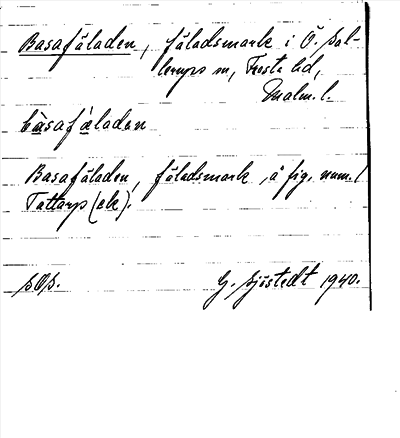 Basafäladen, fäladsmark i Ö. Sal-
lerups sn, Frosta hd,
Malm. l.
bàsafǽladen
Basafäladen, fäladsmark, å fig. num./
Tattarp (ek).
SOS.
G. Sjöstedt 1940.